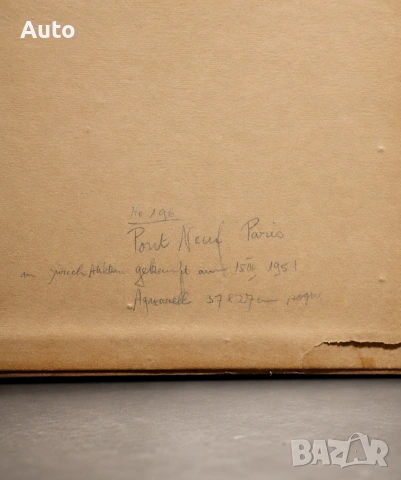 Auto
No 196
Pont Neuf Paris
gekauft am 15 III 1951
Aquarell 37 x 27 cm
BAZAR